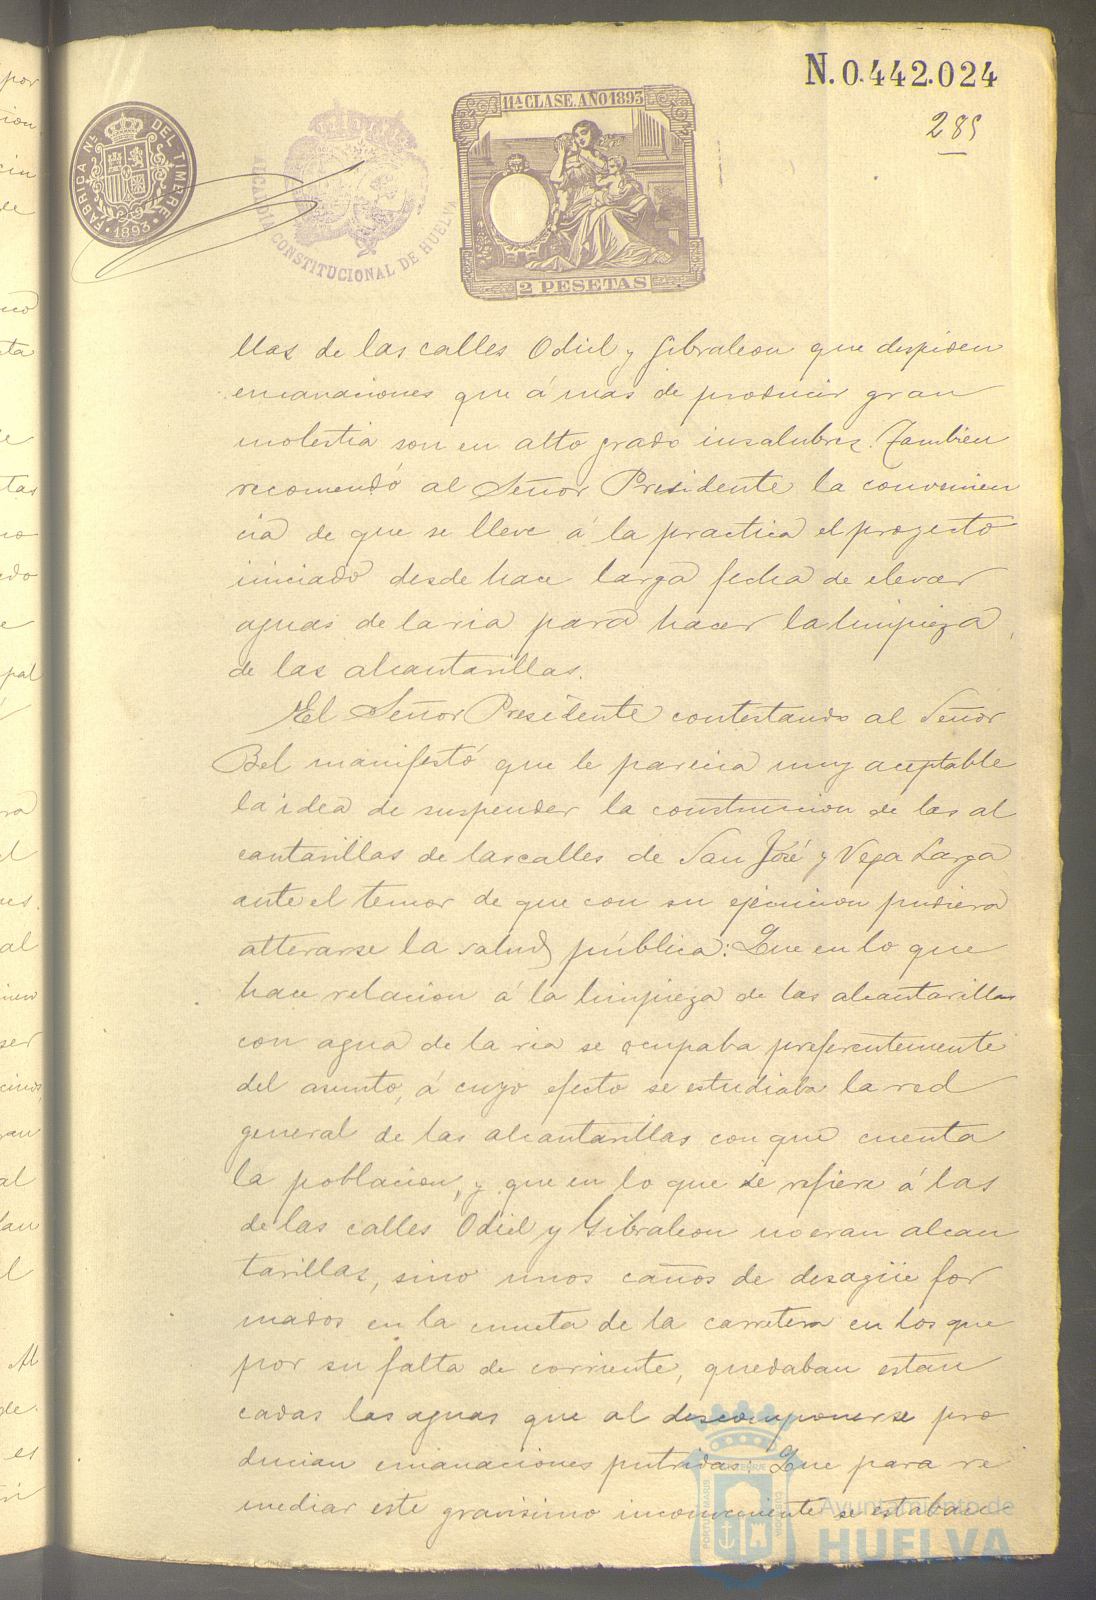 N.0.442.024
285
FABRICA NAL. DEL TIMBRE
1893
ALCALDIA CONSTITUCIONAL DE HUELVA
11ª CLASE. AÑO 1893
2 PESETAS
llas de las calles Odiel y Gibraleon que despiden
emanaciones que á mas de producir gran
molestia son en alto grado insalubres. Tambien
recomendó al Señor Presidente la convenien
cia de que se lleve á la practica el proyecto
iniciado desde hace larga fecha de elevar
aguas de la ria para hacer la limpieza
de las alcantarillas.
El Señor Presidente contestando al Señor
Bel manifestó que le parecia muy aceptable
la idea de suspender la construccion de las al
cantarillas de las calles de San José y Vega Larga
ante el temor de que con su ejecucion pudiera
alterarse la salud pública: Que en lo que
hace relacion á la limpieza de las alcantarillas
con agua de la ria se ocupaba preferentemente
del asunto, á cuyo efecto se estudiaba la red
general de las alcantarillas con que cuenta
la poblacion, y que en lo que se refiere á las
de las calles Odiel y Gibraleon no eran alcan
tarillas, sino unos caños de desagüe for
mados en la cuneta de la carretera en los que
por su falta de corriente, quedaban estan
cadas las aguas que al descomponerse pro
ducian emanaciones putridas: Que para re
mediar este gravisimo inconveniente se estaba
Ayuntamiento de
HUELVA